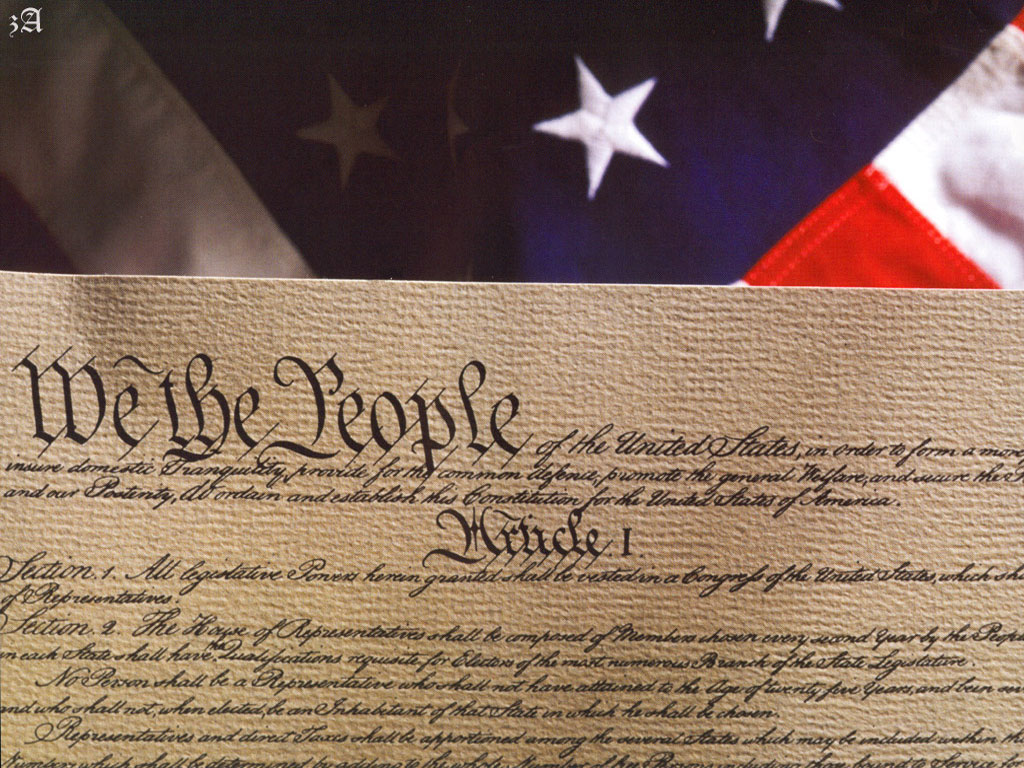 zA
We the People of the United States, in order to form a more
insure domestic Tranquility, provide for the common defence, promote the general Welfare, and secure the
and our Posterity, do ordain and establish this Constitution for the United States of America.
Article I.
Section. 1. All legislative Powers herein granted shall be vested in a Congress of the United States, which
of Representatives.
Section. 2. The House of Representatives shall be composed of Members chosen every second Year by the
in each State shall have the Qualifications requisite for Electors of the most numerous Branch of the State Legislature.
No Person shall be a Representative who shall not have attained to the Age of twenty five Years, and been
and who shall not, when elected, be an Inhabitant of that State in which he shall be chosen.
Representatives and direct Taxes shall be apportioned among the several States which may be included within